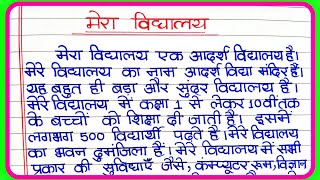 मेरा विद्यालय
मेरा विद्यालय एक आदर्श विद्यालय है।
मेरे विद्यालय का नाम आदर्श विद्या मंदिर है।
यह बहुत ही बड़ा और सुंदर विद्यालय है।
मेरे विद्यालय में कक्षा 1 से लेकर 10वीं तक
के बच्चों को शिक्षा दी जाती है। इसमें
लगभग 500 विद्यार्थी पढ़ते हैं। मेरे विद्यालय
का भवन दुमंजिला है। मेरे विद्यालय में सभी
प्रकार की सुविधाएँ जैसे, कंम्प्यूटर रूम, विज्ञान